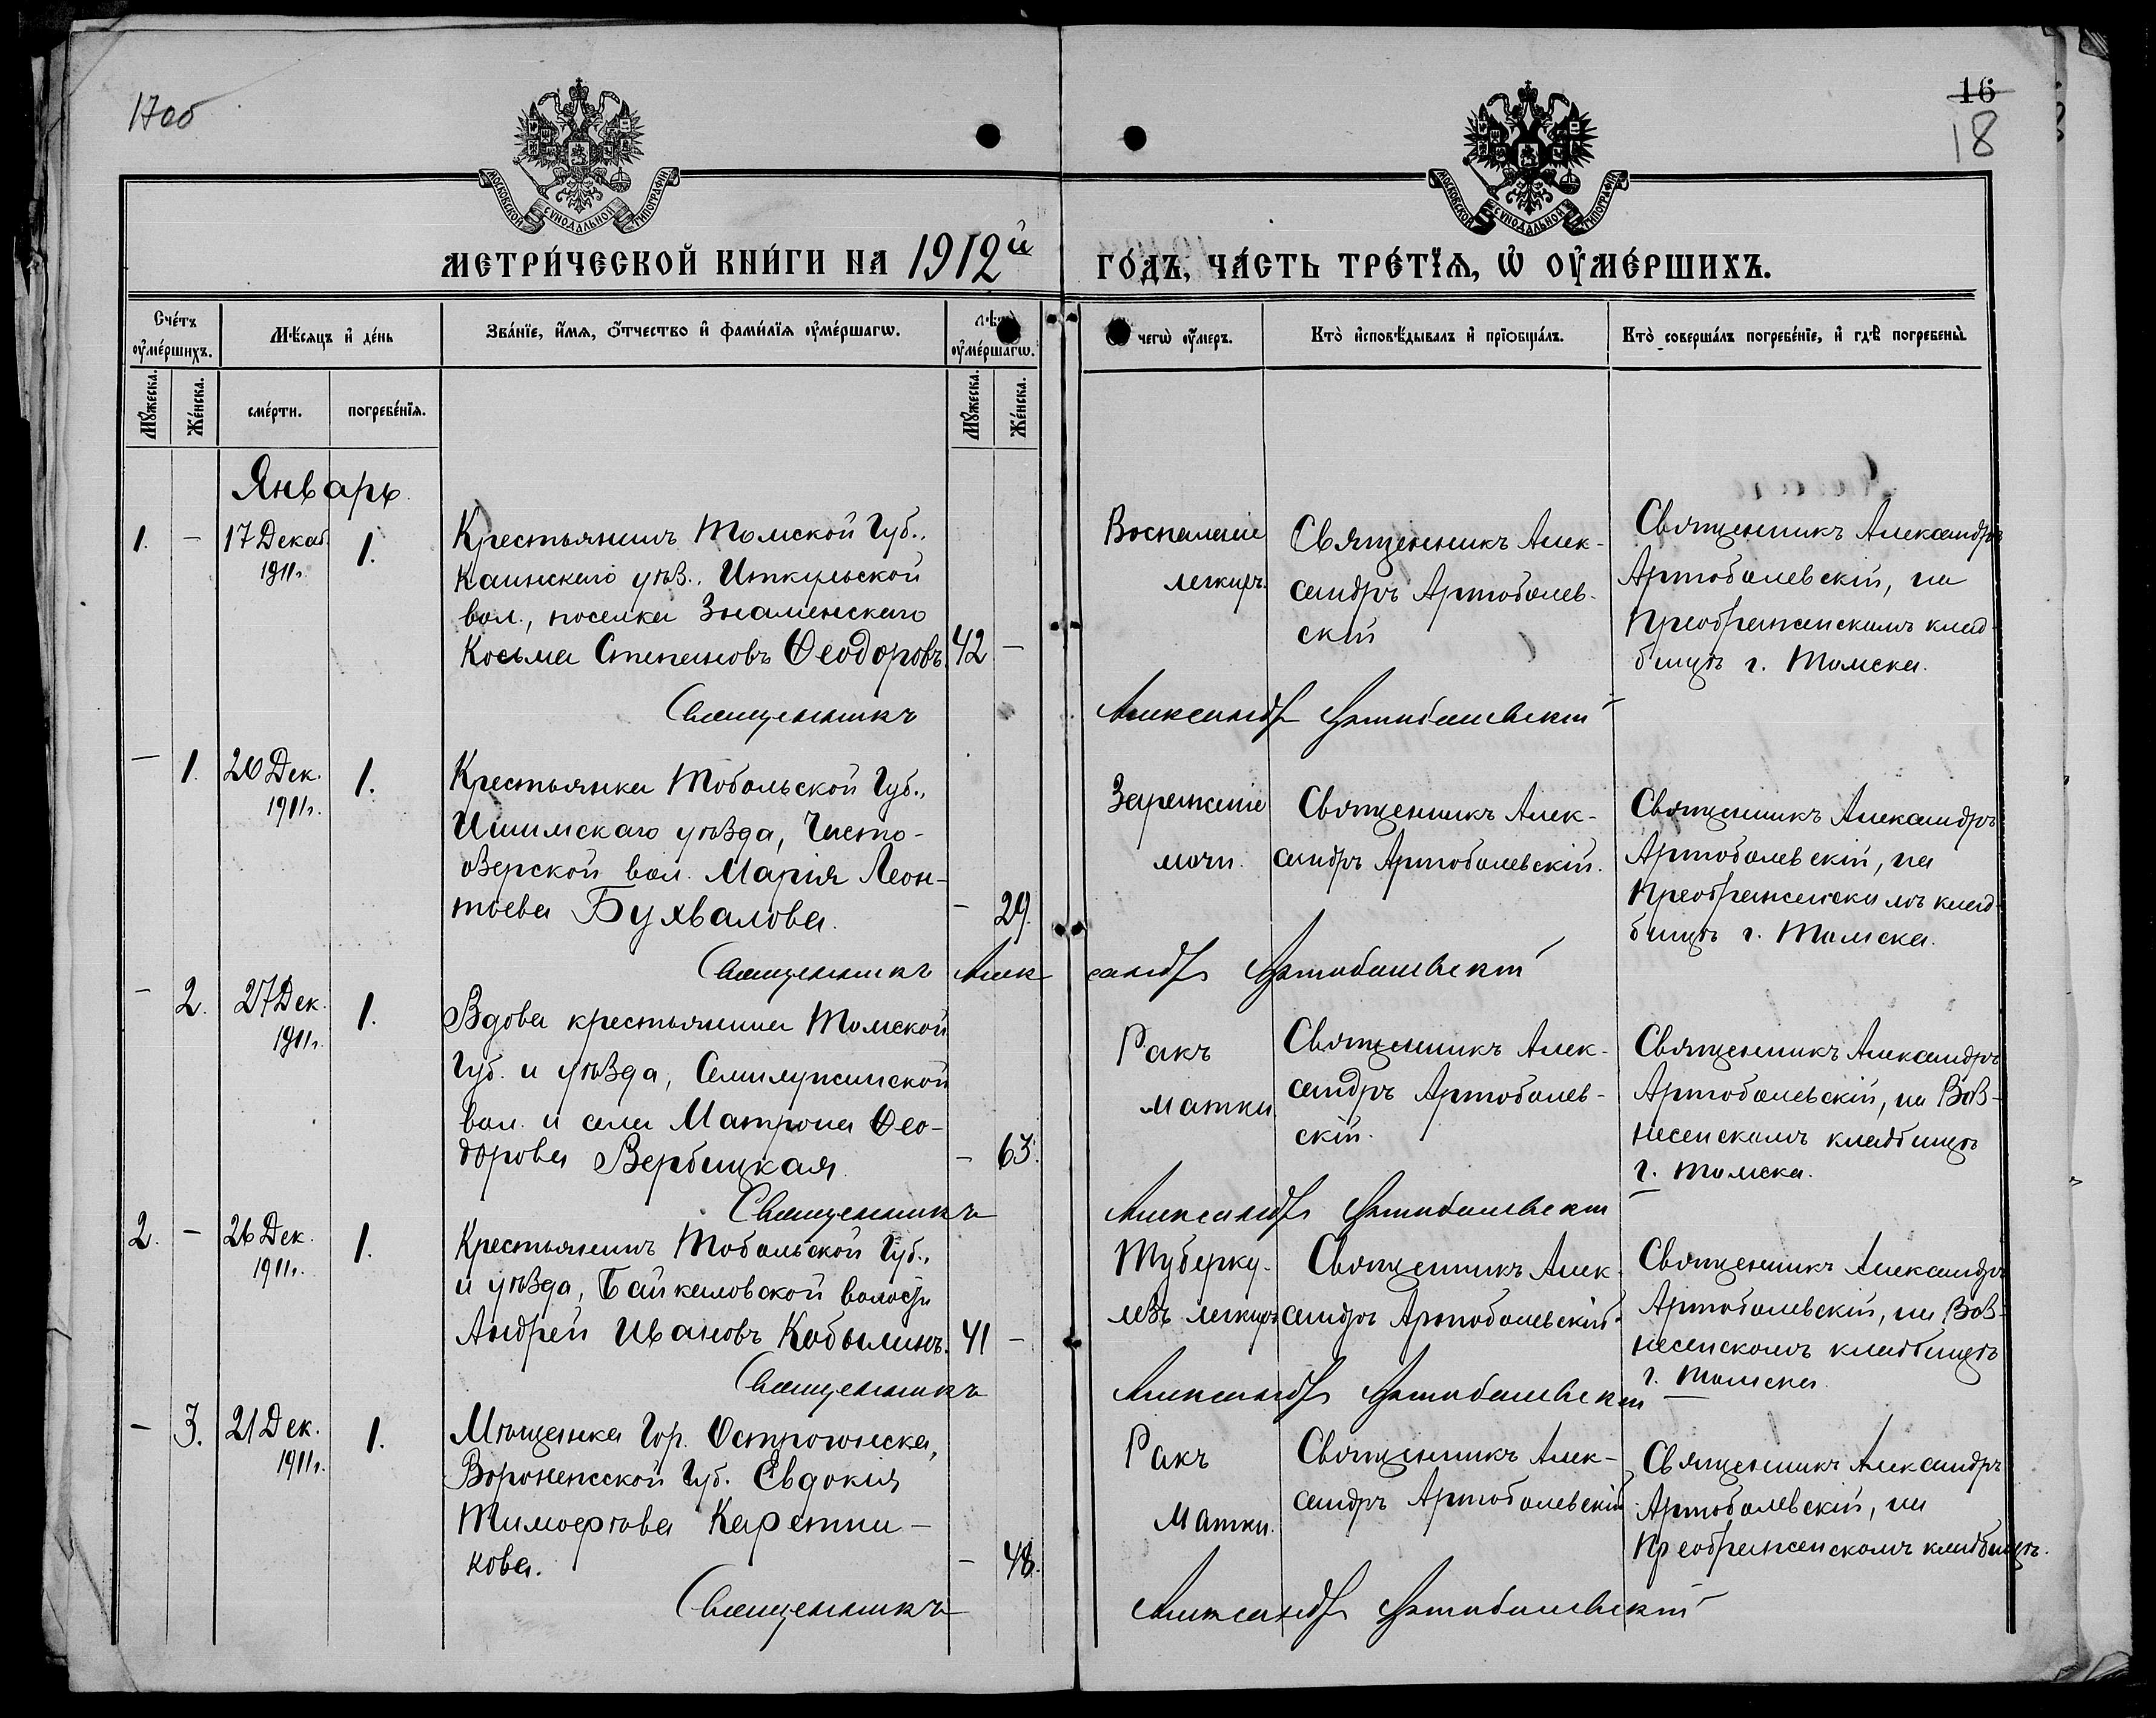 17об
16
18
МОСКОВСКОЙ СУНОДАЛЬНОЙ ТИПОГРАФІИ
МОСКОВСКОЙ СУНОДАЛЬНОЙ ТИПОГРАФІИ
МЕТРИ́ЧЕСКОЙ КНИ́ГИ НА 1912й
ГО́ДЪ, ЧА́СТЬ ТРЕ́ТЇѦ, Ѡ ОУМЕ́РШИХЪ.
Сче́тъ оуме́ршихъ.
Мѣ́сяцъ и҆ де́нь
Зва́нїе, и҆́мѧ, ѻ҆́тчество и҆ фами́лїѧ оуме́ршагѡ.
оуме́ршагѡ.
чегѡ̀ оу҆́меръ.
Кто̀ и҆сповѣ́дывалъ и҆ прїобща́лъ.
Кто̀ соверша́лъ погребе́нїе, и҆ гдѣ̀ погребены̀.
Му́жеска.
Же́нска.
сме́рти.
погребе́нїѧ.
Му́жеска.
Же́нска.
Январь.
1. - 17 Декаб. 1911г. 1.
Крестьянинъ Томской Губ.,
Каинскаго уѣз., Иткульской
вол., поселка Знаменскаго
Косьма Степановъ Ѳеодоровъ. 42 -
Воспаленіе
легкихъ.
Священникъ Алек-
сандръ Артоболев-
скій
Священникъ Александръ
Артоболевскій, на
Преображенскомъ клад-
бищѣ г. Томска.
Священникъ Александръ Артоболевскій
- 1. 20 Дек. 1911г. 1.
Крестьянка Тобольской Губ.,
Ишимскаго уѣзда, Чисто-
озерской вол. Марія Леон-
тьева Бухвалова. - 29.
Зараженіе
мочи.
Священникъ Алек-
сандръ Артоболевскій.
Священникъ Александръ
Артоболевскій, на
Преображенскомъ клад-
бищѣ г. Томска.
Священникъ Александръ Артоболевскій
- 2. 27 Дек. 1911г. 1.
Вдова крестьянина Томской
Губ. и уѣзда, Семилужинской
вол. и села Матрона Ѳео-
дорова Вербицкая. - 63.
Ракъ
матки
Священникъ Алек-
сандръ Артоболев-
скій.
Священникъ Александръ
Артоболевскій, на Воз-
несенскомъ кладбищѣ
г. Томска.
Священникъ Александръ Артоболевскій
2. - 26 Дек. 1911г. 1.
Крестьянинъ Тобольской Губ.,
и уѣзда, Байкаловской волости
Андрей Ивановъ Кобылинъ. 41 -
Туберку-
лезъ легкихъ
Священникъ Алек-
сандръ Артоболевскій
Священникъ Александръ
Артоболевскій, на Воз-
несенскомъ кладбищѣ
г. Томска.
Священникъ Александръ Артоболевскій
- 3. 21 Дек. 1911г. 1.
Мѣщанка Гор. Острогожска,
Воронежской Губ. Евдокія
Тимофѣева Каретни-
кова. - 48.
Ракъ
матки.
Священникъ Алек-
сандръ Артоболевскій
Священникъ Александръ
Артоболевскій, на
Преображенскомъ кладбищѣ.
Священникъ Александръ Артоболевскій